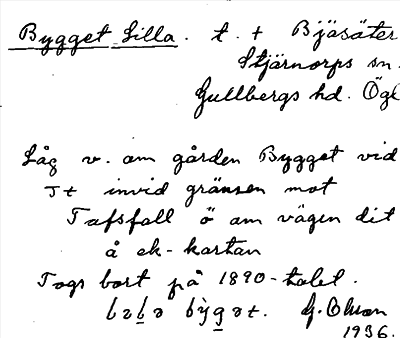 Bygget Lilla. t. + Bjäsäter
Stjärnorps sn.
Gullbergs hd. Ögl
Låg v. om gården Bygget vid
Tt invid gränsen mot
Tafsfall ö om vägen dit
å ek-kartan
Togs bort på 1890-talet.
G. Olson
1936.